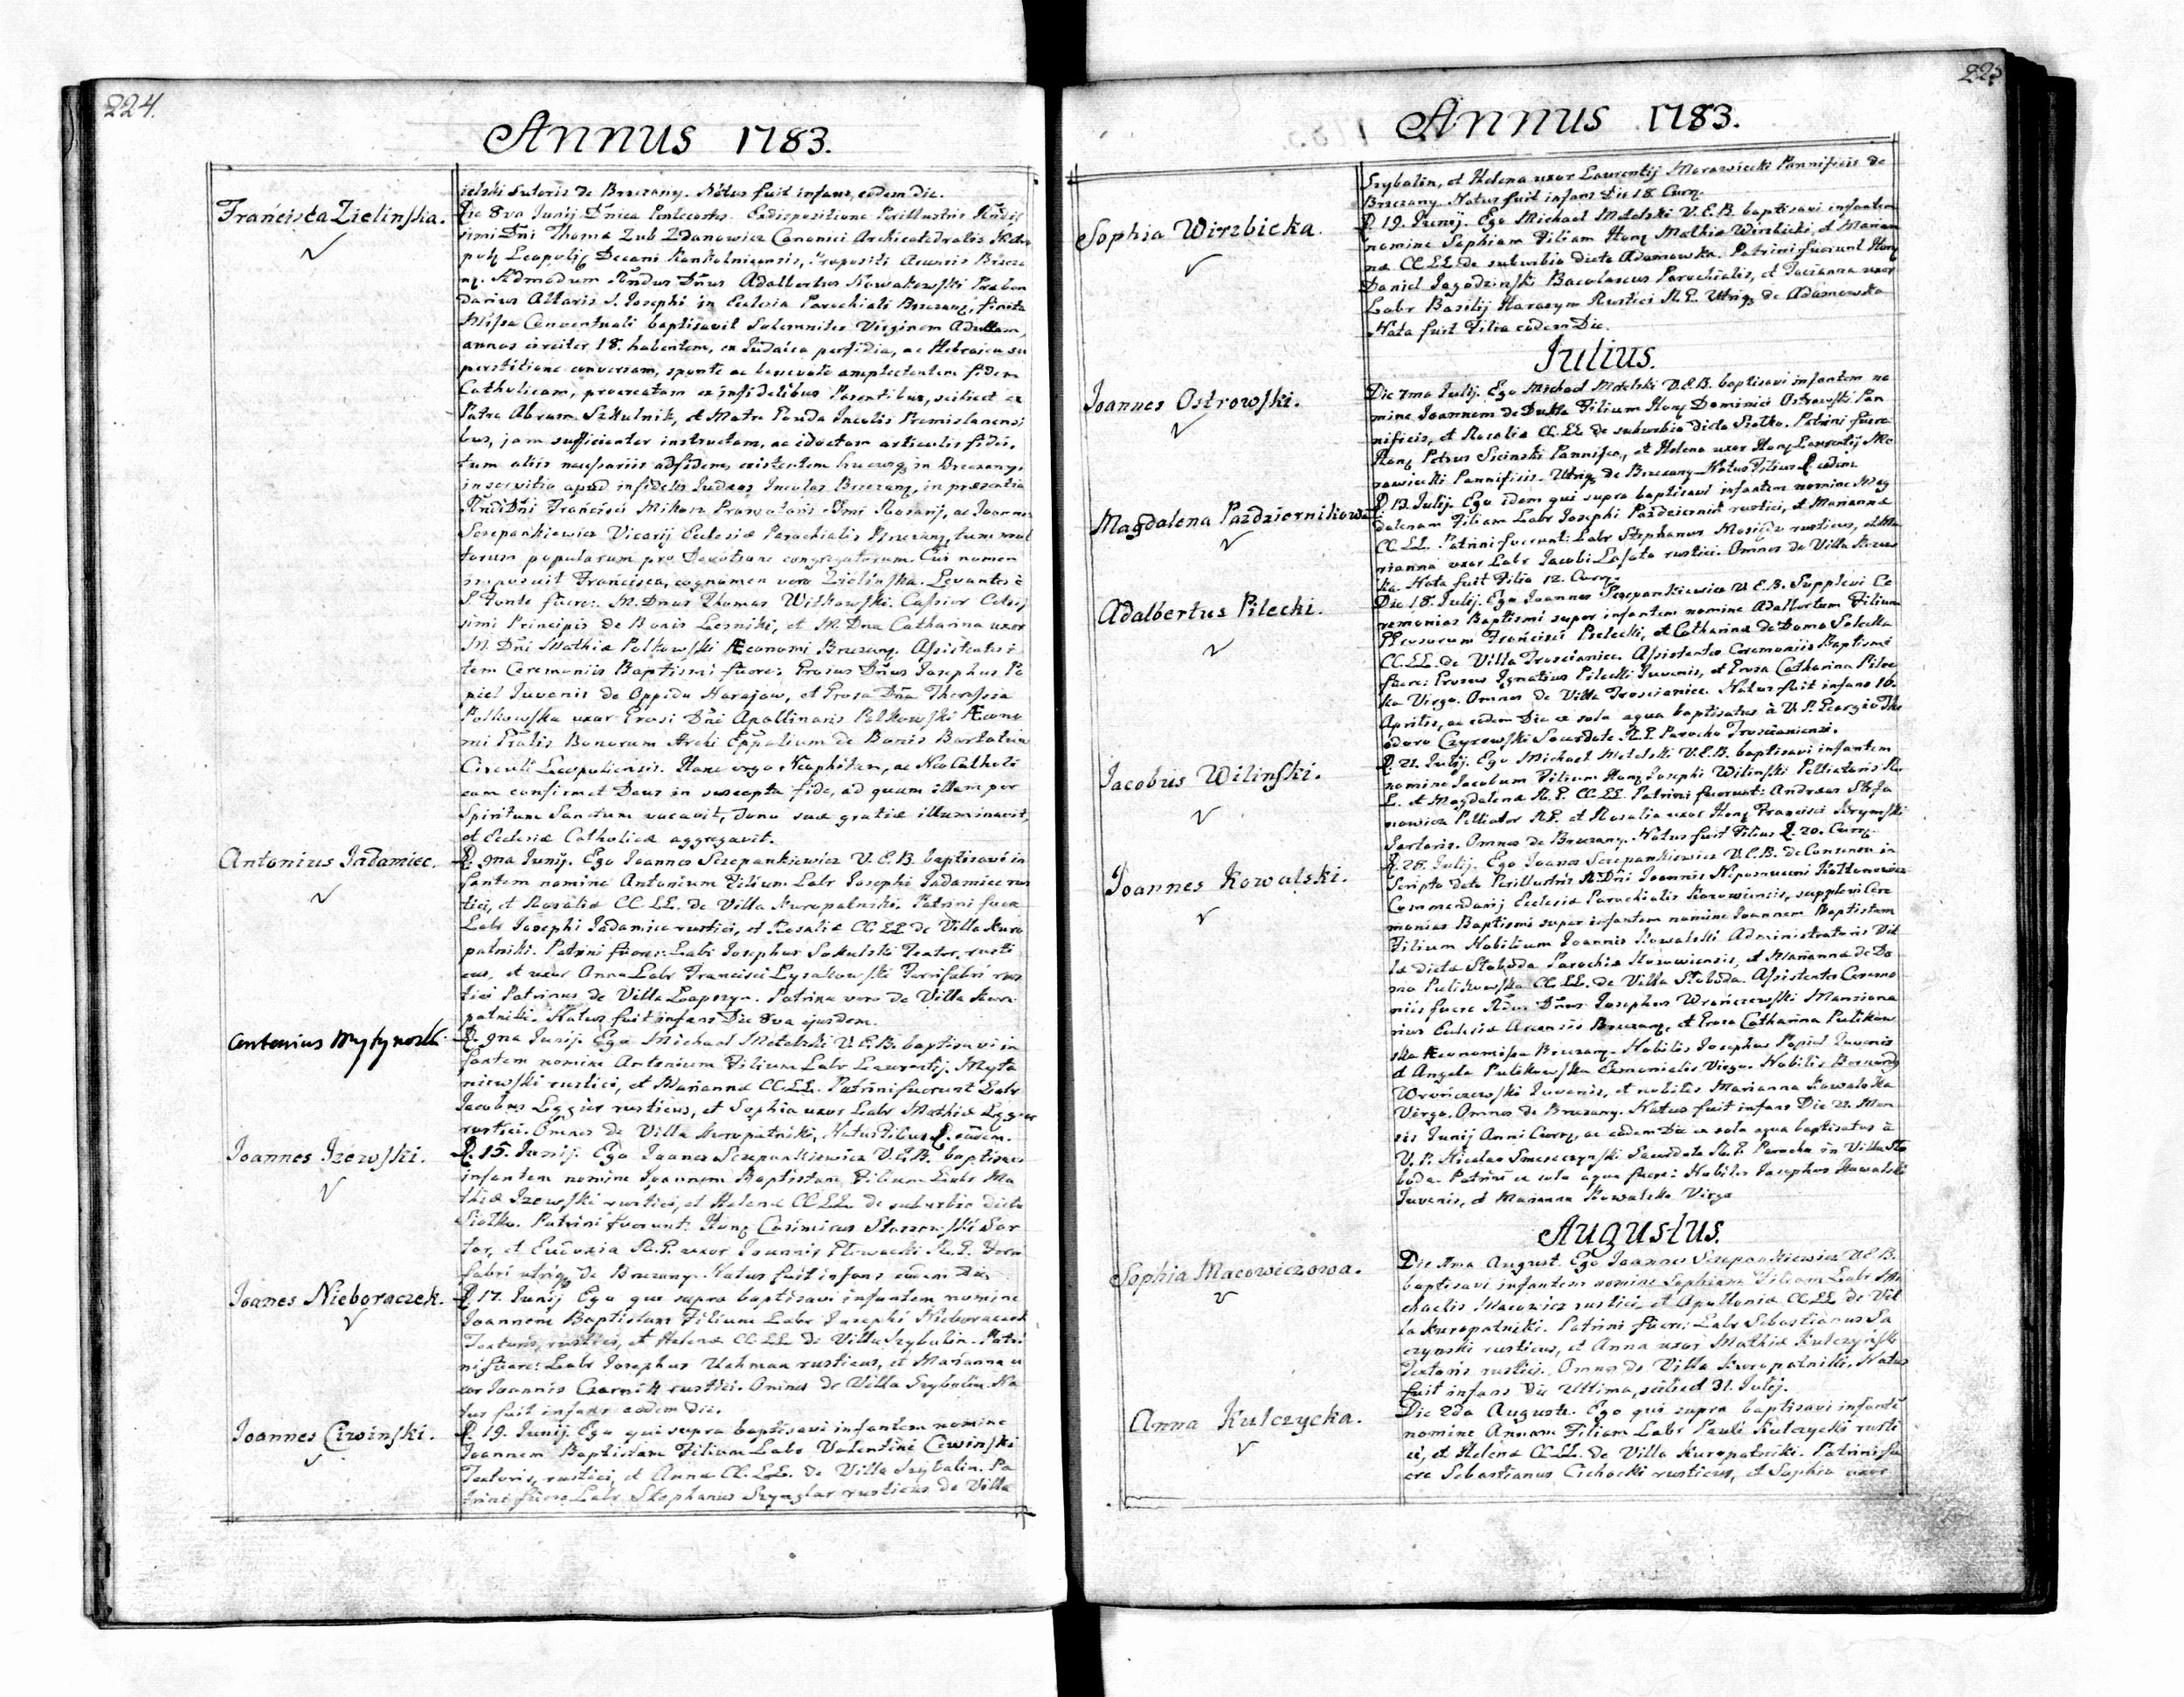 224.
Annus 1783.
ielski Sutoris de Brzezany. Natus fuit infans, eodem die.
Francisca Zielinska.
Die 8va Junij Dnica Pentecostes. Ex dispositione Perillustris Rndis
simi Dni Thoma Zub Zdanowicz Canonici Archicatedralis Metro
polis Leopolis Decani Propositi Brzeza
Admodum Rndus Dnus Adalbertus Nowakowski Praben
darius Altaris S. Josephi in Eclesia Parochiali Brzezan, finita
Missa Conventuali baptisavit Solemniter Virginem Adultam,
annos circiter 18. habentem, ex Judaica perfidia, ac Hebraica su
perstitione conversam, sponte ac benevole amplectentem fidem
Catholicam, procreatam ex infidelibus Parentibus, scilicet ex
Patre Abram Szkulnik, et Matre Incolis Premislanensi
bus, jam sufficienter instructam, ac edoctam articulis fidei,
tum aliis necessariis ad fidem, existentem hucusq in Brzezany
in servitio apud infideles Judaos Incolas Brzezan, in prasentia
Rndi Dni Francisci Mikosz Promotoris Smi Rosarij, ac Joannis
Szczepankiewicz Vicarij Eclesia Parochialis Brzezan, tum mul
torum popularum pro devotione congregatorum. Cui nomen
imposuit Francisca, cognomen vero Zielinska. Levantes e
S. Fonte fuere: M. Dnus Thomas Witkowski Cassior Celsis
simi Principis de Bonis Lesniki, et M. Dna Catharina uxor
M. Dni Mathia Polkowski Æconomi Brzezan. Assistentes i
tem Ceremoniis Baptismi fuere: Grosus Dnus Josephus Po
piel Juvenis de Oppido Narajow, et Grosa Dna Theressia
Polkowska uxor Grosi Dni Apollinaris Polkowski Æcono
mi Gralis Bonorum Archi Eppalium de Bonis
Circuli Leopoliensis. Hanc ergo Neophitam, ac Neo Catholi
cam confirmet Deus in suscepta fide, ad quam illam per
Spiritum Sanctum vocavit, dono sua gratia illuminavit,
et Eclesia Catholica aggregavit.
Antonius Jadamiec.
D. 9na Junij. Ego Joannes Szczepankiewicz V. E. B. baptisavi in
fantem nomine Antonium Filium Labr Josephi Jadamiec rus
tici, et Rosalia CC. LL. de Villa Kuropatniki. Patrini fuere
Labr Josephi Jadamiec rustici, et Rosalia CC LL de Villa Kuro
patniki. Patrini fuere: Labr Josephus Sokulski Textor, rusti
cus, et uxor Anna Labr Francisci Lysakowski rus
tici Patrinus de Villa Loapszyn. Patrina vero de Villa Kuro
patniki. Natus fuit infans Die 8va ejusdem.
Antonius Mytynoski.
D. 9na Junij. Ego Michael Metelski V. E. B. baptisavi in
fantem nomine Antonium Filium Labr Laurentij Myta
niewski rustici, et Marianna CC. LL. Patrini fuerunt Labr
Jacobus Leggier rusticus, et Sophia uxor Labr Mathia Legier
rustici. Omnes de Villa Kuropatniki, Natus Filius D. eadem.
Joannes Jzewski.
D. 15. Junij. Ego Joannes Szczepankiewicz V. E. B. baptisavi
infantem nomine Joannem Baptistam Filium Labr Ma
thia Jzewski rustici, et Helena CC LL de suburbio dicto
Siołko. Patrini fuerunt: Hon Casimirus Sar
tor, et Eudoxia R. G. uxor Joannis Głowacki R. G.
fabri utriq de Brzezany. Natus fuit infans eadem Die
Joanes Nieboraczek.
D. 17. Junij Ego qui supra baptisavi infantem nomine
Joannem Baptistam Filium Labr Josephi Nieboraczek
Textoris, rustici, et Helena CC LL de Villa Szybalin. Patri
ni fuere: Labr Josephus rusticus, et Marianna u
xor Joannis Czarnik rustici. Omnes de Villa Szybalin. Na
tus fuit infans eodem die.
Joannes Cirwinski.
D. 19. Junij. Ego qui supra baptisavi infantem nomine
Joannem Baptistam Filium Labr Valentini Cirwinski
Textoris, rustici, et Anna CC. LL. de Villa Szybalin. Pa
trini fuere Labr Stephanus Szynglar rusticus de Villa
225
Annus 1783.
Szybalin, et Helena uxor Laurentij Morawiecki Pannificis de
Brzezany. Natus fuit infans Die 18. Curr.
Sophia Wirzbicka.
D. 19. Junij. Ego Michael Metelski V. E. B. baptisavi infantem
nomine Sophiam Filiam Hon Mathia Wirzbicki, et Marian
na CC LL de suburbio dicto Adamowka. Patrini fuerunt Hon
Daniel Jagodzinski Bacolareus Parochialis, et uxor
Labr Basilij Harasym Rustici R. G. Utriq de Adamowka
Nata fuit Filia eadem Die.
Julius.
Joannes Ostrowski.
Die 7ma Julij. Ego Michael Metelski V. E. B. baptisavi infantem no
mine Joannem de Dukla Filium Hon Dominici Ostrowski Pan
nificis, et Rosalia CC. LL de suburbio dicto Siołko. Patrini fuere
Hon Petrus Sicinski Pannifex, et Helena uxor Hon Laurentij Mo
rawiecki Pannificis. Utriq de Brzezany Natus Filius D eadem
Magdalena Pazdziernikowa.
D. 13. Julij. Ego idem qui supra baptisavi infantem nomine Mag
dalenam Filiam Labr Josephi Pazdziernik rustici, et Marianna
CC. LL. Patrini fuerunt: Labr Stephanus rusticus, et Ma
rianna uxor Labr Jacobi Lasota rustici. Omnes de Villa
ka. Nata fuit Filia 12. Curr.
Adalbertus Pilecki.
Die 18. Julij. Ego Joannes Szczepankiewicz V. E. B. Supplevi Ce
remonias Baptismi super infantem nomine Adalbertum Filium
Grosorum Francisci Pielecki, et Catharina de Domo Solecka
CC. LL. de Villa Troscianiec. Assistentes Ceremoniis Baptismi
fuere: Grosus Ignatius Pilecki Juvenis, et Grosa Catharina Pilec
ka Virgo. Omnes de Villa Troscianiec. Natus fuit infans 16.
Aprilis, ac eadem Die ex sola aqua baptisatus à V. P. Georgio The
odoro Czyrowski Sacerdote R. G. Parocho Troscianiensi.
Jacobus Wilinski.
D. 21. Julij. Ego Michael Metelski V. E. B. baptisavi infantem
nomine Jacobum Filium Hon Josephi Wilinski Pelliatoris R.
L. et Magdalena R. G. CC. LL. Patrini fuerunt: Andreas Stefa
nowicz Pelliator R. G. et Rosalia uxor Hon Francisci
Sartoris. Omnes de Brzezany. Natus fuit Filius D. 20. Curr.
Joannes Kowalski.
D. 28. Julij. Ego Joanes Szczepankiewicz V. E. B. de Consensu in
Scripto dato Perillustris R. Dni Joannis Nepomuceni
Commendarij Eclesia Parochialis Kozowiensis, supplevi Cere
monias Baptismi super infantem nomine Joannem Baptistam
Filium Nobilium Joannis Kowalski Administratoris Vil
la dicta Słoboda Parochia Kozowiensis, et Marianna de Do
mo Pulikowska CC. LL. de Villa Słoboda. Assistentes Ceremo
niis fuere Rdus Dnus Josephus Wronczewski Mansiona
rius Eclesia Arcensis Brzezan, et Grosa Catharina Pulikow
ska Æconomissa Brzezan. Nobilis Josephus Popiel Juvenis
et Angela Pulikowska Virgo. Nobilis Bernard
Wronczewski Juvenis, et nobilis Marianna Kowalska
Virgo. Omnes de Brzezany. Natus fuit infans Die 22. Men
sis Junij Anni Curr, ac eadem Die ex sola aqua baptisatus à
V. P. Nicolao Smereczynski Sacerdote R. G. Parocho in Villa Sło
boda. Patrini ex sola aqua fuere: Nobilis Josephus Kowalski
Juvenis, et Marianna Kowalska Virgo
Augustus.
Sophia Macowiczowa.
Die 1ma August. Ego Joannes Szczepankiewicz V. E. B.
baptisavi infantem nomine Sophiam Filiam Labr Mi
chaelis Macowicz rustici, et Apollonia CC LL de Vil
la Kuropatniki. Patrini fuere: Labr Sebastianus Sa
czynski rusticus, et Anna uxor Mathia Kulczynski
Textoris rustici. Omnes de Villa Kuropatniki. Natus
fuit infans Die Ultima, scilicet 31. Julij.
Anna Kulczycka.
Die 2da Augusti. Ego qui supra baptisavi infante
nomine Annam Filiam Labr Pauli Kulczycki rusti
ci, et Helena CC LL. de Villa Kuropatniki. Patrini fu
ere Sebastianus Cichocki rusticus, et Sophia uxor